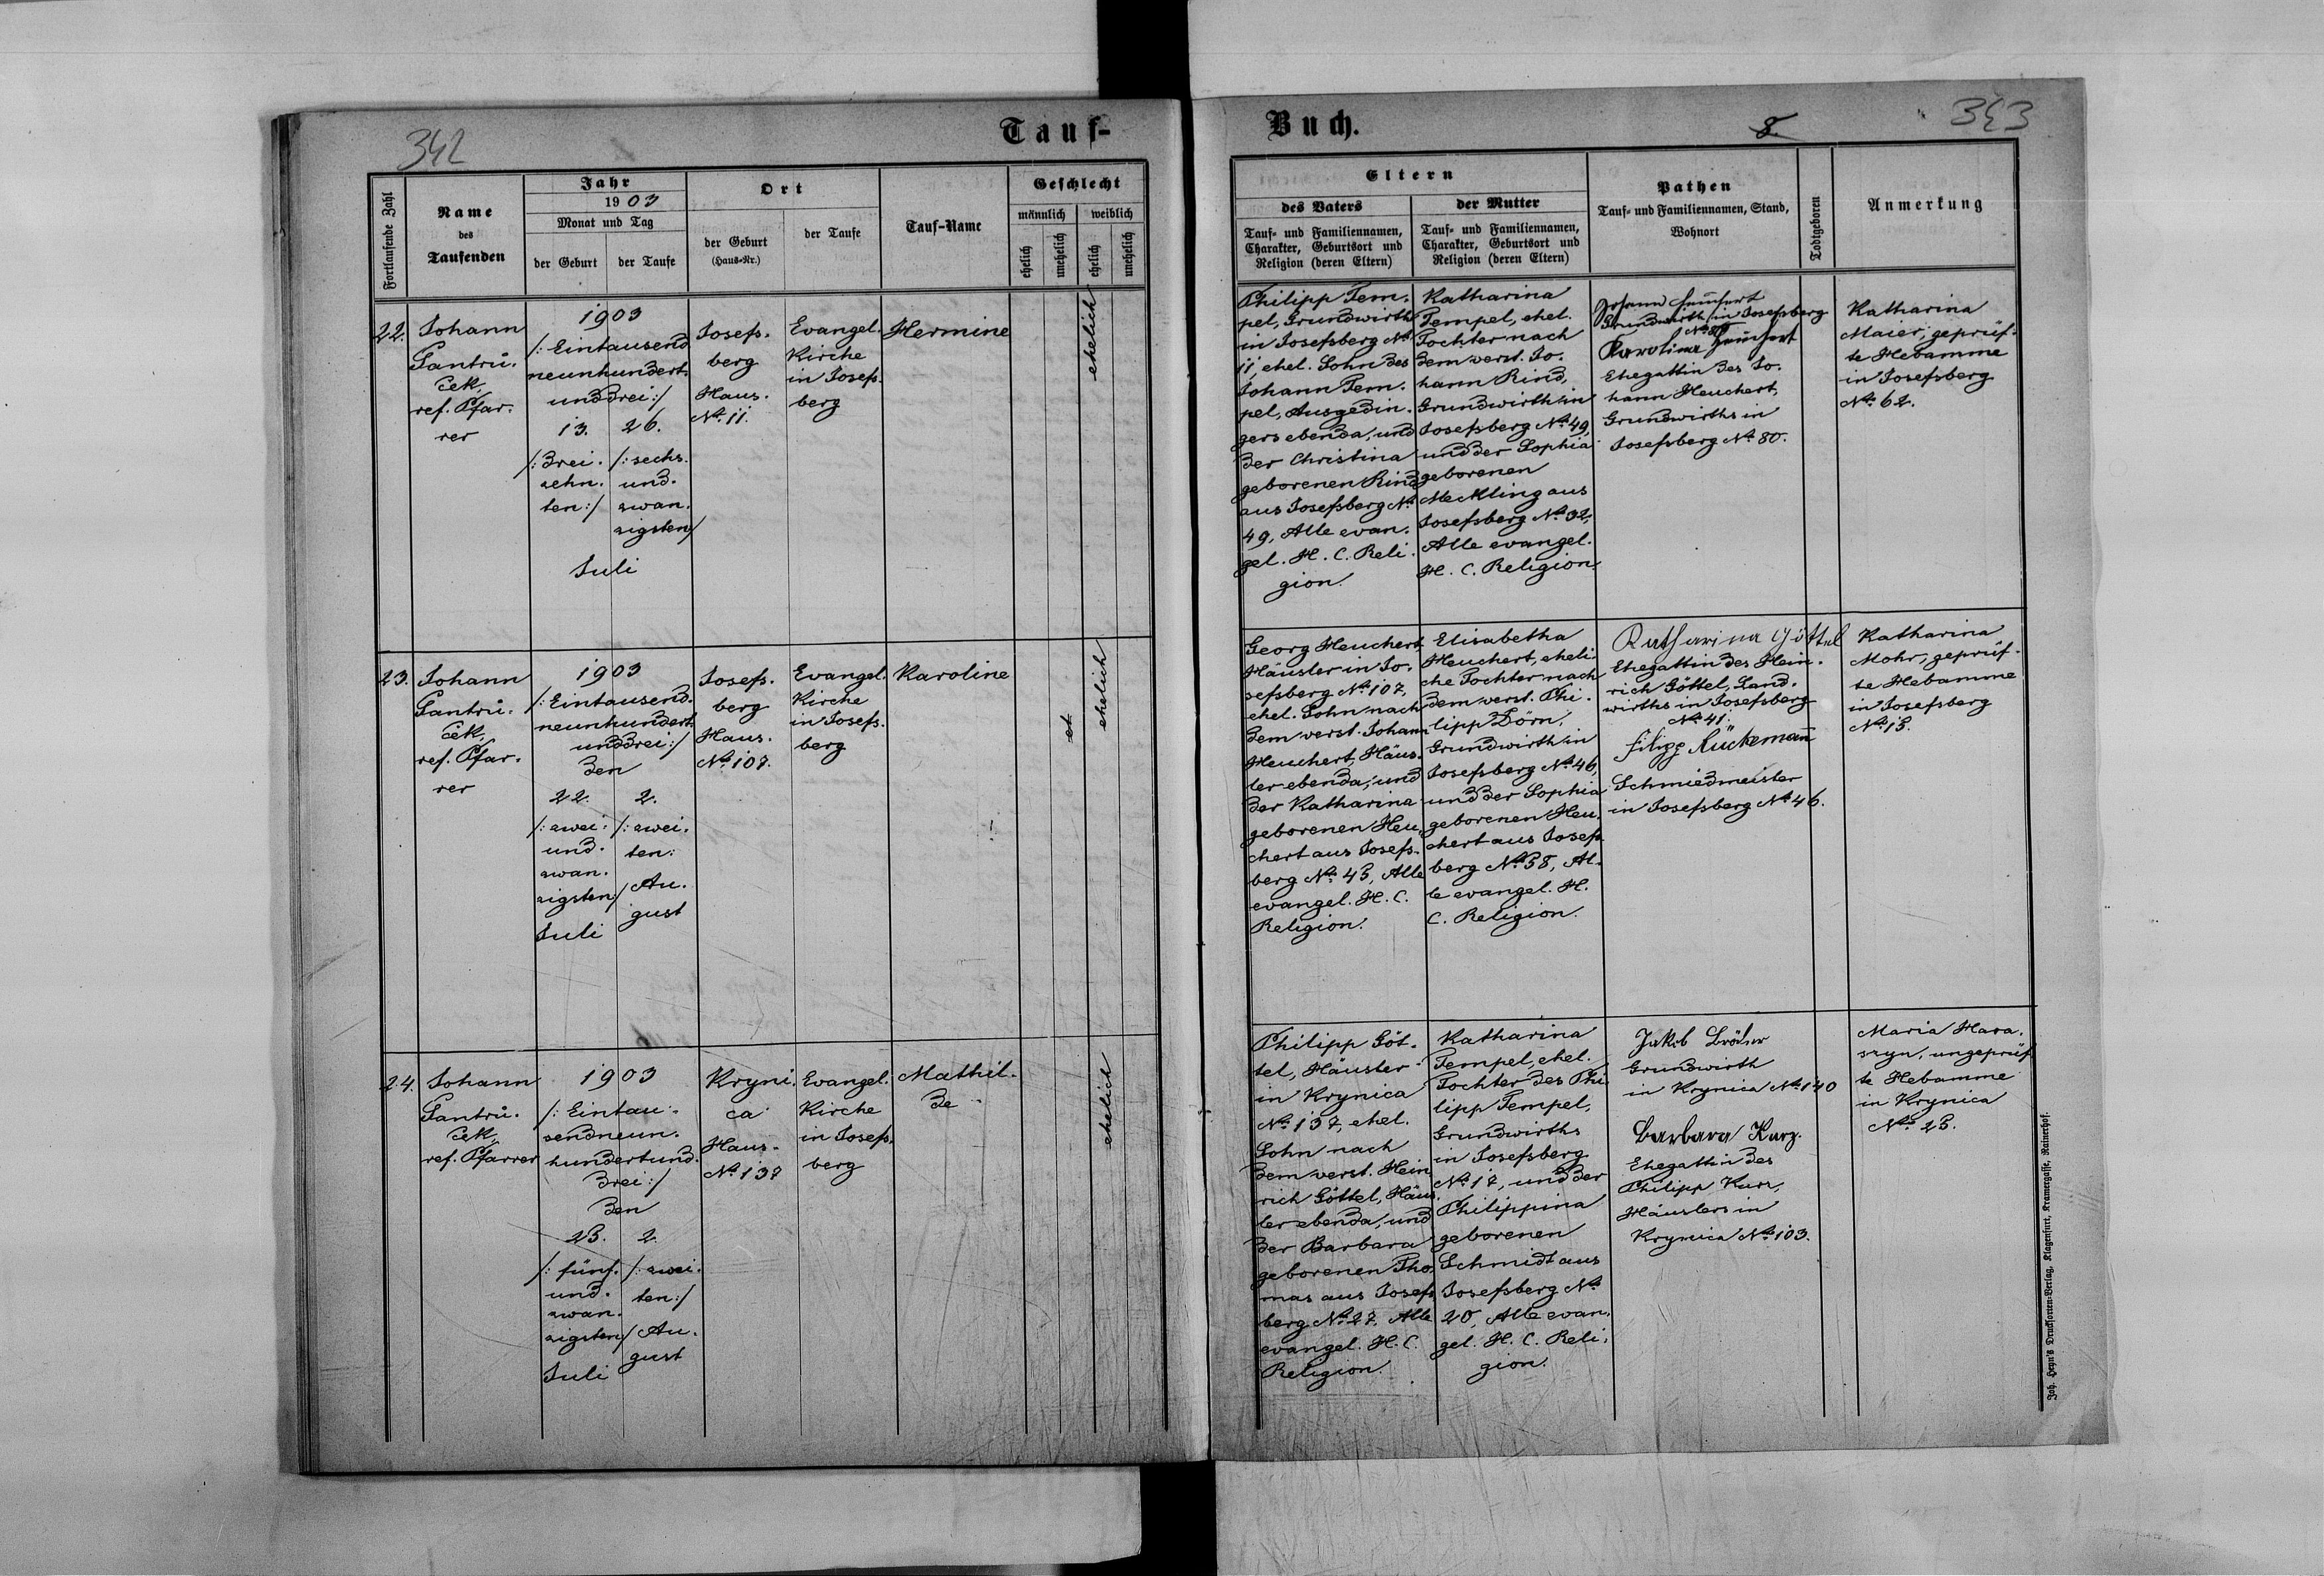 342
Tauf-
Fortlaufende Zahl
Name
des
Taufenden
Jahr
1903
Monat und Tag
der Geburt
der Taufe
Ort
der Geburt
(Haus-Nr.)
der Taufe
Tauf-Name
Geschlecht
männlich
weiblich
ehelich
unehelich
ehelich
unehelich
22.
Johann
Jantrů-
ček,
ref. Pfar-
rer
1903
/: Eintausend
neunhundert-
unddrei :/
13.
/: drei-
zehn-
ten :/
26.
/: sechs-
und-
zwan-
zigsten/
Juli
Josefs-
berg
Haus-
No. 11.
Evangel.
Kirche
in Josefs-
berg
Hermine
ehelich
23.
Johann
Jantrů-
ček,
ref. Pfar-
rer
1903
/: Eintausend-
neunhundert-
unddrei :/
den
22.
/: zwei-
und-
zwan-
zigsten/
Juli
2.
/: zwei-
ten:
/Au-
gust
Josefs-
berg
Haus-
No. 107.
Evangel.
Kirche
in Josefs-
berg
Karoline
ehelich
24.
Johann
Jantrů-
ček,
ref. Pfarrer
1903
/: Eintau-
sendneun-
hundertund-
drei :/
den
25.
/: fünf-
und-
zwan-
zigsten/
Juli
2.
/: zwei-
ten :/
Au-
gust
Kryni-
ca
Haus-
No. 137
Evangel.
Kirche
in Josefs-
berg
Mathil-
de
ehelich
Buch.
8.
343
Eltern
des Vaters
Tauf- und Familiennamen,
Charakter, Geburtsort und
Religion (deren Eltern)
der Mutter
Tauf- und Familiennamen,
Charakter, Geburtsort und
Religion (deren Eltern)
Pathen
Tauf- und Familiennamen, Stand,
Wohnort
Todtgeboren
Anmerkung
Philipp Tem-
pel, Grundwirth
in Josefsberg No.
11, ehel. Sohn des
Johann Tem-
pel, Ausgedin-
gers ebenda, und
der Christina
geborenen Rind
aus Josefsberg No.
49, Alle evan-
gel. H. C. Reli-
gion.
Katharina
Tempel, ehel.
Tochter nach
dem verst. Jo-
hann Rind,
Grundwirth in
Josefsberg No. 49,
und der Sophia
geborenen
Meckling aus
Josefsberg No. 32,
Alle evangel.
H. C. Religion.
Johann Heuchert
Grundwirth in Josefsberg
No. 80
Karolina Heuchert
Ehegattin des Jo-
hann Heuchert,
Grundwirths in
Josefsberg No. 80.
Katharina
Maier, geprüf-
te Hebamme
in Josefsberg
No. 62.
Georg Heuchert,
Häusler in Jo-
sefsberg No. 107,
ehel. Sohn nach
dem verst. Johann
Heuchert, Häus-
ler ebenda, und
der Katharina
geborenen Heu-
chert aus Josefs-
berg No. 45, Alle
evangel. H. C.
Religion.
Elisabetha
Heuchert, eheli-
che Tochter nach
dem verst. Phi-
lipp Dörn,
Grundwirth in
Josefsberg No. 46,
und der Sophia
geborenen Heu-
chert aus Josefs-
berg No. 58, Al-
le evangel. H.
C. Religion.
Katharina Göttel
Ehegattin des Hein-
rich Göttel, Land-
wirths in Josefsberg
No. 41.
Filipp Rückemann
Schmiedmeister
in Josefsberg No. 46.
Katharina
Mohr, geprüf-
te Hebamme
in Josefsberg
No. 15.
Philipp Göt-
tel, Häusler
in Krynica
No. 137, ehel.
Sohn nach
dem verst. Hein-
rich Göttel, Häus-
ler ebenda, und
der Barbara
geborenen Tho-
mas aus Josefs-
berg No. 27, Alle
evangel. H. C.
Religion.
Katharina
Tempel, ehel.
Tochter des Phi-
lipp Tempel,
Grundwirths
in Josefsberg
No. 17, und der
Philippina
geborenen
Schmidt aus
Josefsberg No.
20, Alle evan-
gel. H. C. Reli-
gion.
Jakob Bröder
Grundwirth
in Krynica No. 140
Barbara Kurz.
Ehegattin des
Philipp Kurz,
Häuslers in
Krynica No. 103.
Maria Hara-
szyn, ungeprüf-
te Hebamme
in Krynica
No. 25.
Joh. Heyn's Drucksorten-Verlag, Klagenfurt, Kramergasse, Rainerhof.